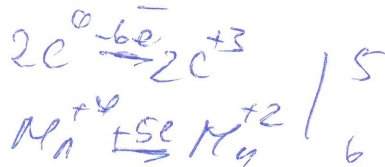 2C⁰ -6e̅ → 2C⁺³ | 5
Mn⁺⁴ +5e → Mn⁺² | 6